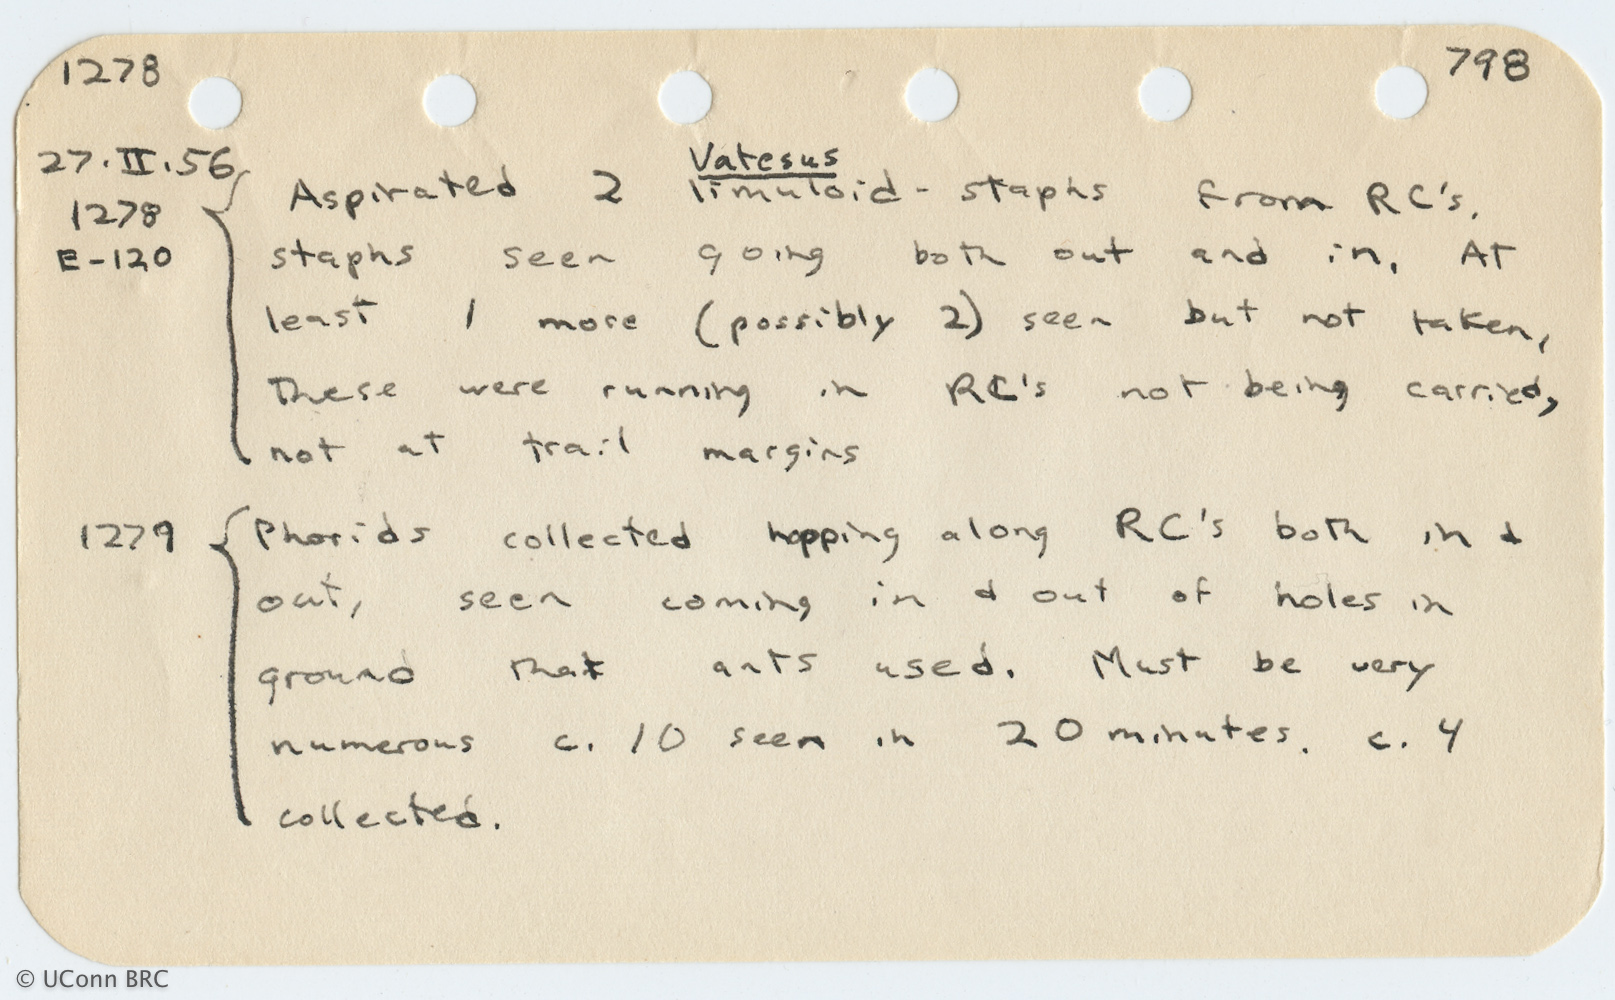 1278
798
27.II.56
Vatesus
Aspirated 2 limuloid-staphs from RC's.
1278
E-120
staphs seen going both out and in. At
least 1 more (possibly 2) seen but not taken,
These were running in RC's not being carried,
not at trail margins
1279
Phorids collected hopping along RC's both in &
out, seen coming in & out of holes in
ground that ants used. Must be very
numerous c. 10 seen in 20 minutes. c. 4
collected.
© UConn BRC